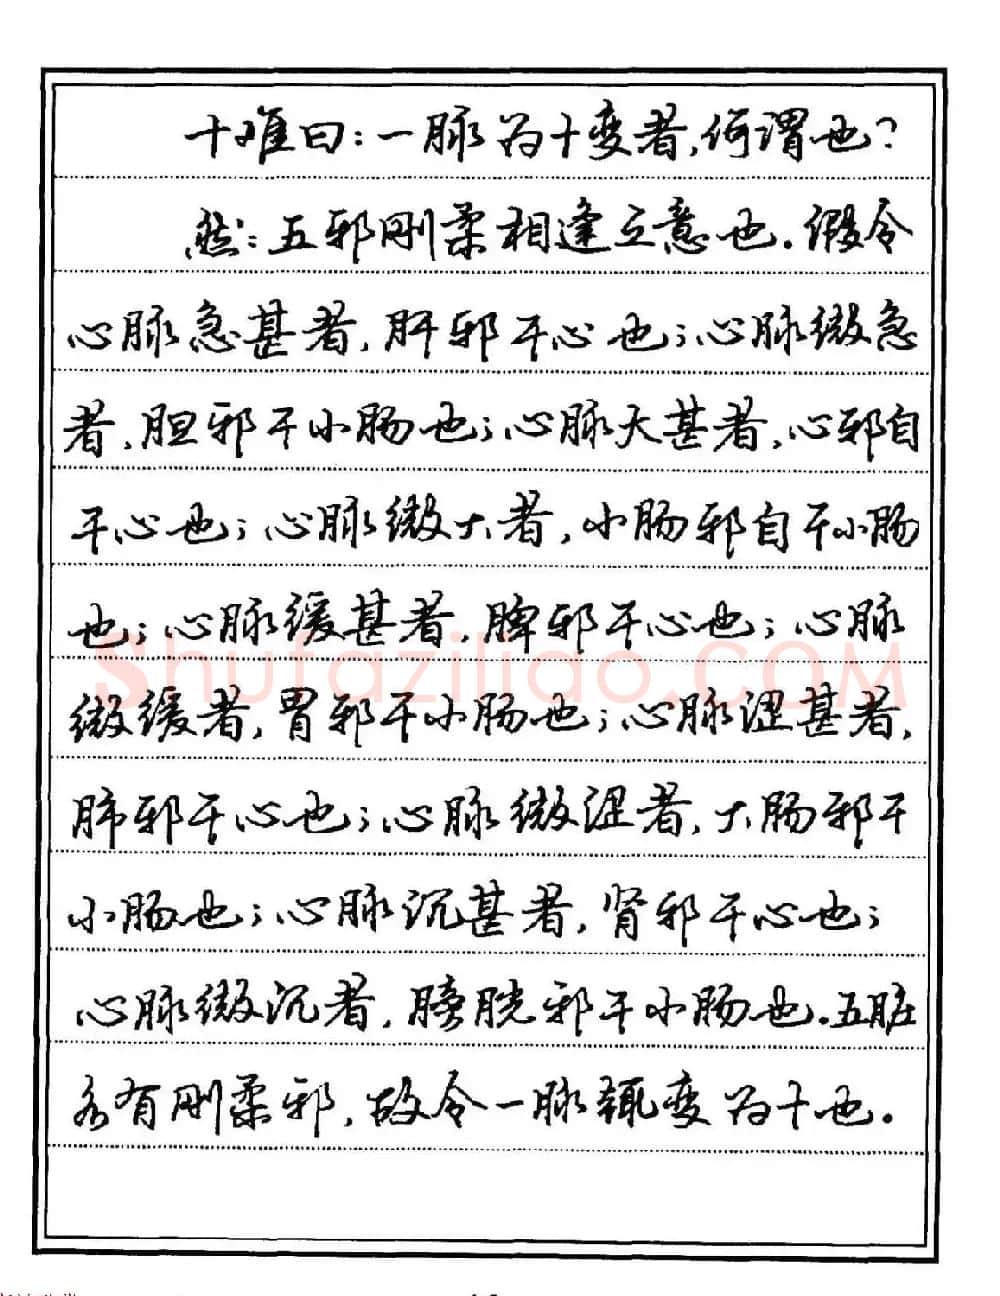 十难曰：一脉为十变者，何谓也？
然：五邪刚柔相逢之意也。假令
心脉急甚者，肝邪干心也；心脉微急
者，胆邪干小肠也；心脉大甚者，心邪自
干心也；心脉微大者，小肠邪自干小肠
也；心脉缓甚者，脾邪干心也；心脉
微缓者，胃邪干小肠也；心脉涩甚者，
肺邪干心也；心脉微涩者，大肠邪干
小肠也；心脉沉甚者，肾邪干心也；
心脉微沉者，膀胱邪干小肠也。五脏
各有刚柔邪，故令一脉辄变为十也。
Shufaziliao.COM